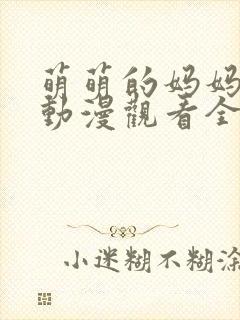 萌萌的妈妈
動漫觀看全
小迷糊不糊涂